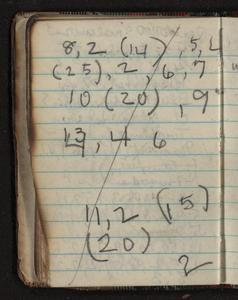 8, 2 (14), 5, 2
(25), 2, 6, 7
10 (20), 9
17, 4 6
11, 2 (15)
(20)
2